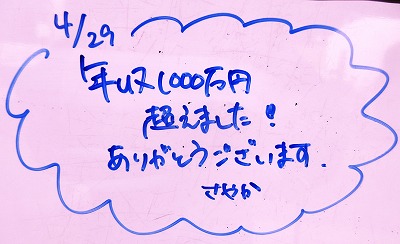 4/29
年収1000万円
超えました!
ありがとうございます.
さやか